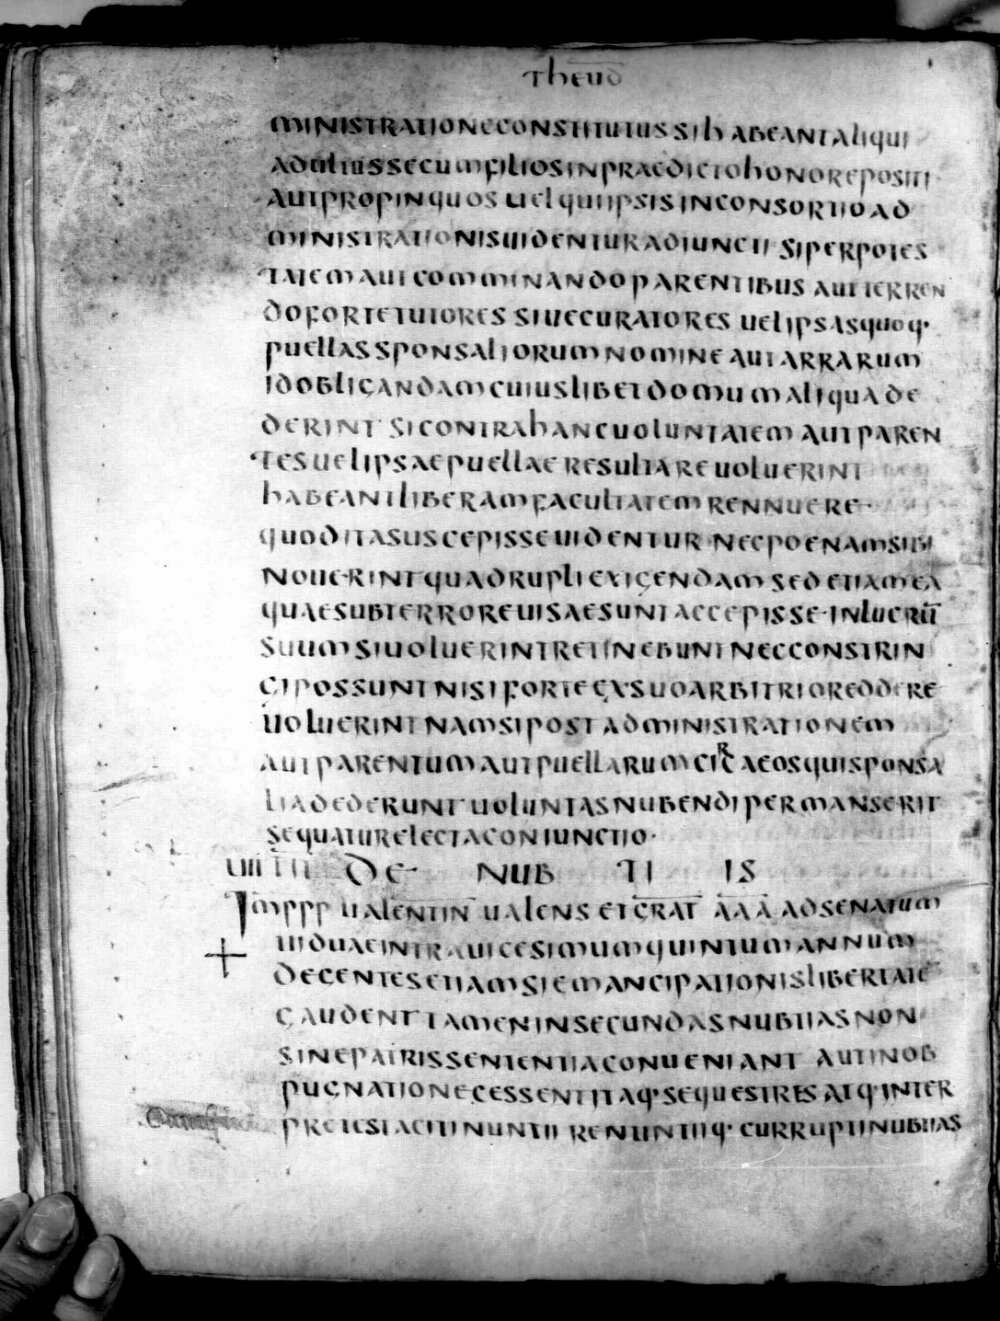 Theud
MINISTRATIONE CONSTITUTUS SI HABEANT ALIQUI
AD ILLIUS SECUM FILIOS IN PRAEDICTO HONORE POSITI
AUT PROPINQUOS UEL QUI IPSIS IN CONSORTIO AD
MINISTRATIONIS UIDENTUR ADIUNCTI SI PER POTES
TATEM AUT COMMINANDO PARENTIBUS AUT TERREN
DO FORTE TUTORES SIUE CURATORES UEL IPSAS QUOQ·
PUELLAS SPONSALIORUM NOMINE AUT ARRARUM
ID OBLIGANDAM CUIUSLIBET DOMUM ALIQUA DE
DERINT SI CONTRA HANC UOLUNTATEM AUT PAREN
TES UEL IPSAE PUELLAE RESULTARE UOLUERINT
HABEANT LIBERAM FACULTATEM RENNUERE·
QUOD ITA SUSCEPISSE UIDENTUR· NEC POENAM SIBI
NOUERINT QUADRUPLI EXIGENDAM SED ETIAM EA
QUAE SUB TERRORE UISAE SUNT ACCEPISSE· IN LUCRŪ
SUUM SI UOLUERINT RETINEBUNT NEC CONSTRIN
GI POSSUNT NISI FORTE EX SUO ARBITRIO REDDERE
UOLUERINT NAM SI POST ADMINISTRATIONEM
AUT PARENTUM AUT PUELLARUM CIRCA EOS QUI SPONSA
LIA DEDERUNT UOLUNTAS NUBENDI PERMANSERIT
SEQUATUR ELECTA CONIUNCTIO·
UII TIT DE NUBTIIS
IMPPP UALENTIN̄ UALENS ET GRAT̄ ĀĀĀ AD SENATUM
UIDUAE INTRA UICESIMUM QUINTUM ANNUM
DECENTES ETIAM SI EMANCIPATIONIS LIBERTATE
GAUDENT TAMEN IN SECUNDAS NUBTIAS NON
SINE PATRIS SENTENTIA CONUENIANT AUT IN OB
PUGNATIONE CESSENT ITAQ· SEQUESTRES ATQ· INTER
PRETES TACITI NUNTII RENUNTIIQ· CURRUPTI NUBTIAS